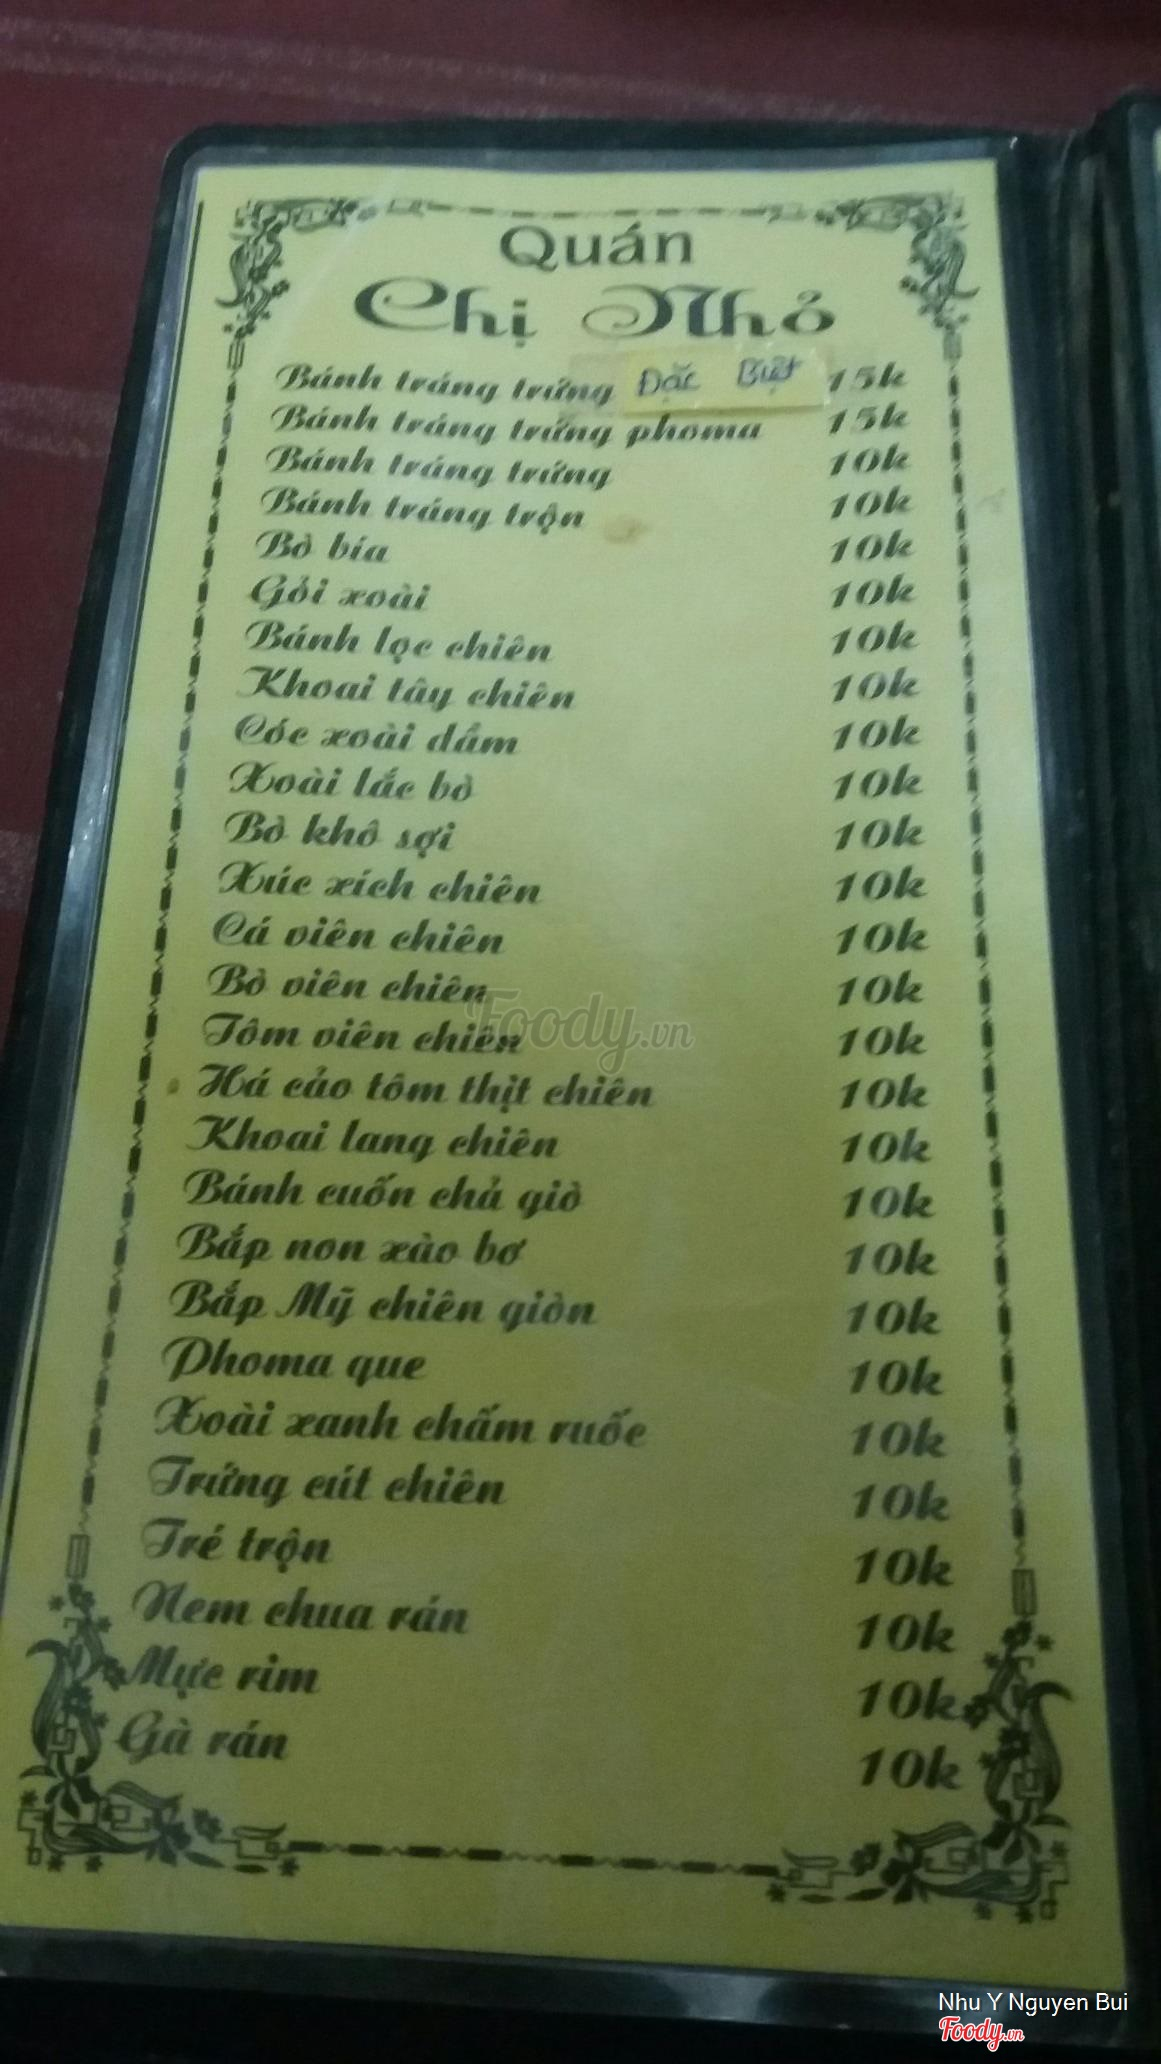 Quán
Chị Nhỏ
Bánh tráng trứng Đặc Biệt 15k
Bánh tráng trứng phoma 15k
Bánh tráng trứng 10k
Bánh tráng trộn 10k
Bò bía 10k
Gỏi xoài 10k
Bánh lọc chiên 10k
Khoai tây chiên 10k
Cóc xoài dầm 10k
Xoài lắc bò 10k
Bò khô sợi 10k
Xúc xích chiên 10k
Cá viên chiên 10k
Bò viên chiên 10k
Tôm viên chiên 10k
Há cảo tôm thịt chiên 10k
Khoai lang chiên 10k
Bánh cuốn chả giò 10k
Bắp non xào bơ 10k
Bắp Mỹ chiên giòn 10k
Phoma que 10k
Xoài xanh chấm ruốc 10k
Trứng cút chiên 10k
Tré trộn 10k
Nem chua rán 10k
Mực rim 10k
Gà rán 10k
Foody.vn
Nhu Y Nguyen Bui
Foody.vn